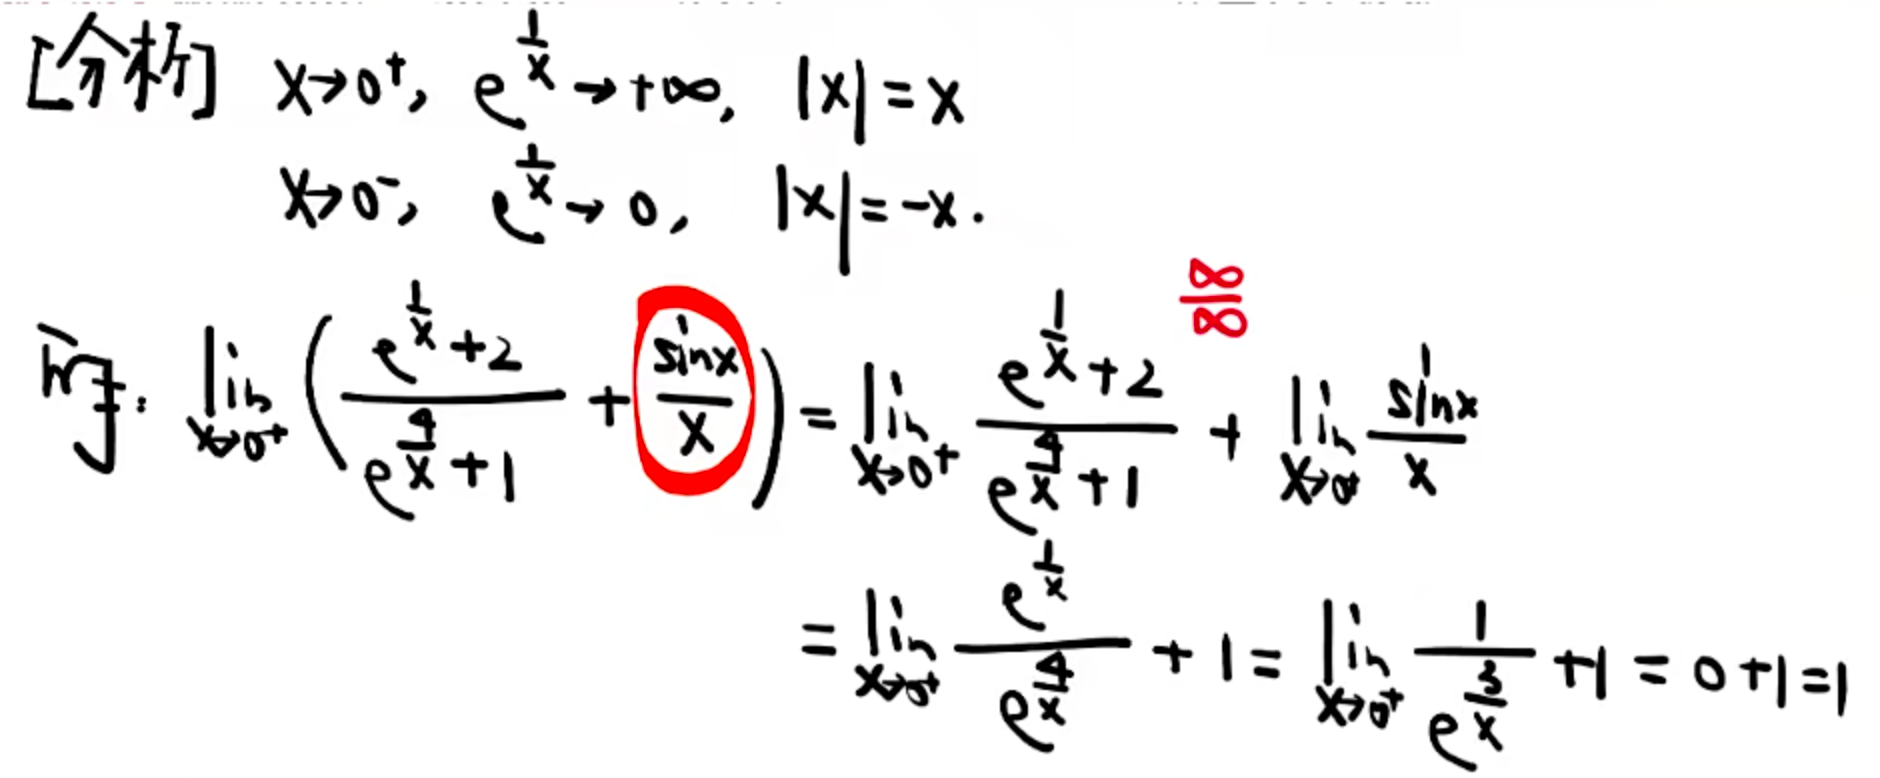 [分析] x→0⁺, e^{1/x}→+∞, |x|=x
x→0⁻, e^{1/x}→0, |x|=-x.
lim_{x→0⁺} ( (e^{1/x}+2)/(e^{4/x}+1) + sinx/x ) = lim_{x→0⁺} (e^{1/x}+2)/(e^{4/x}+1) + lim_{x→0⁺} sinx/x
∞/∞
= lim_{x→0⁺} e^{1/x}/e^{4/x} + 1 = lim_{x→0⁺} 1/e^{3/x} + 1 = 0+1=1